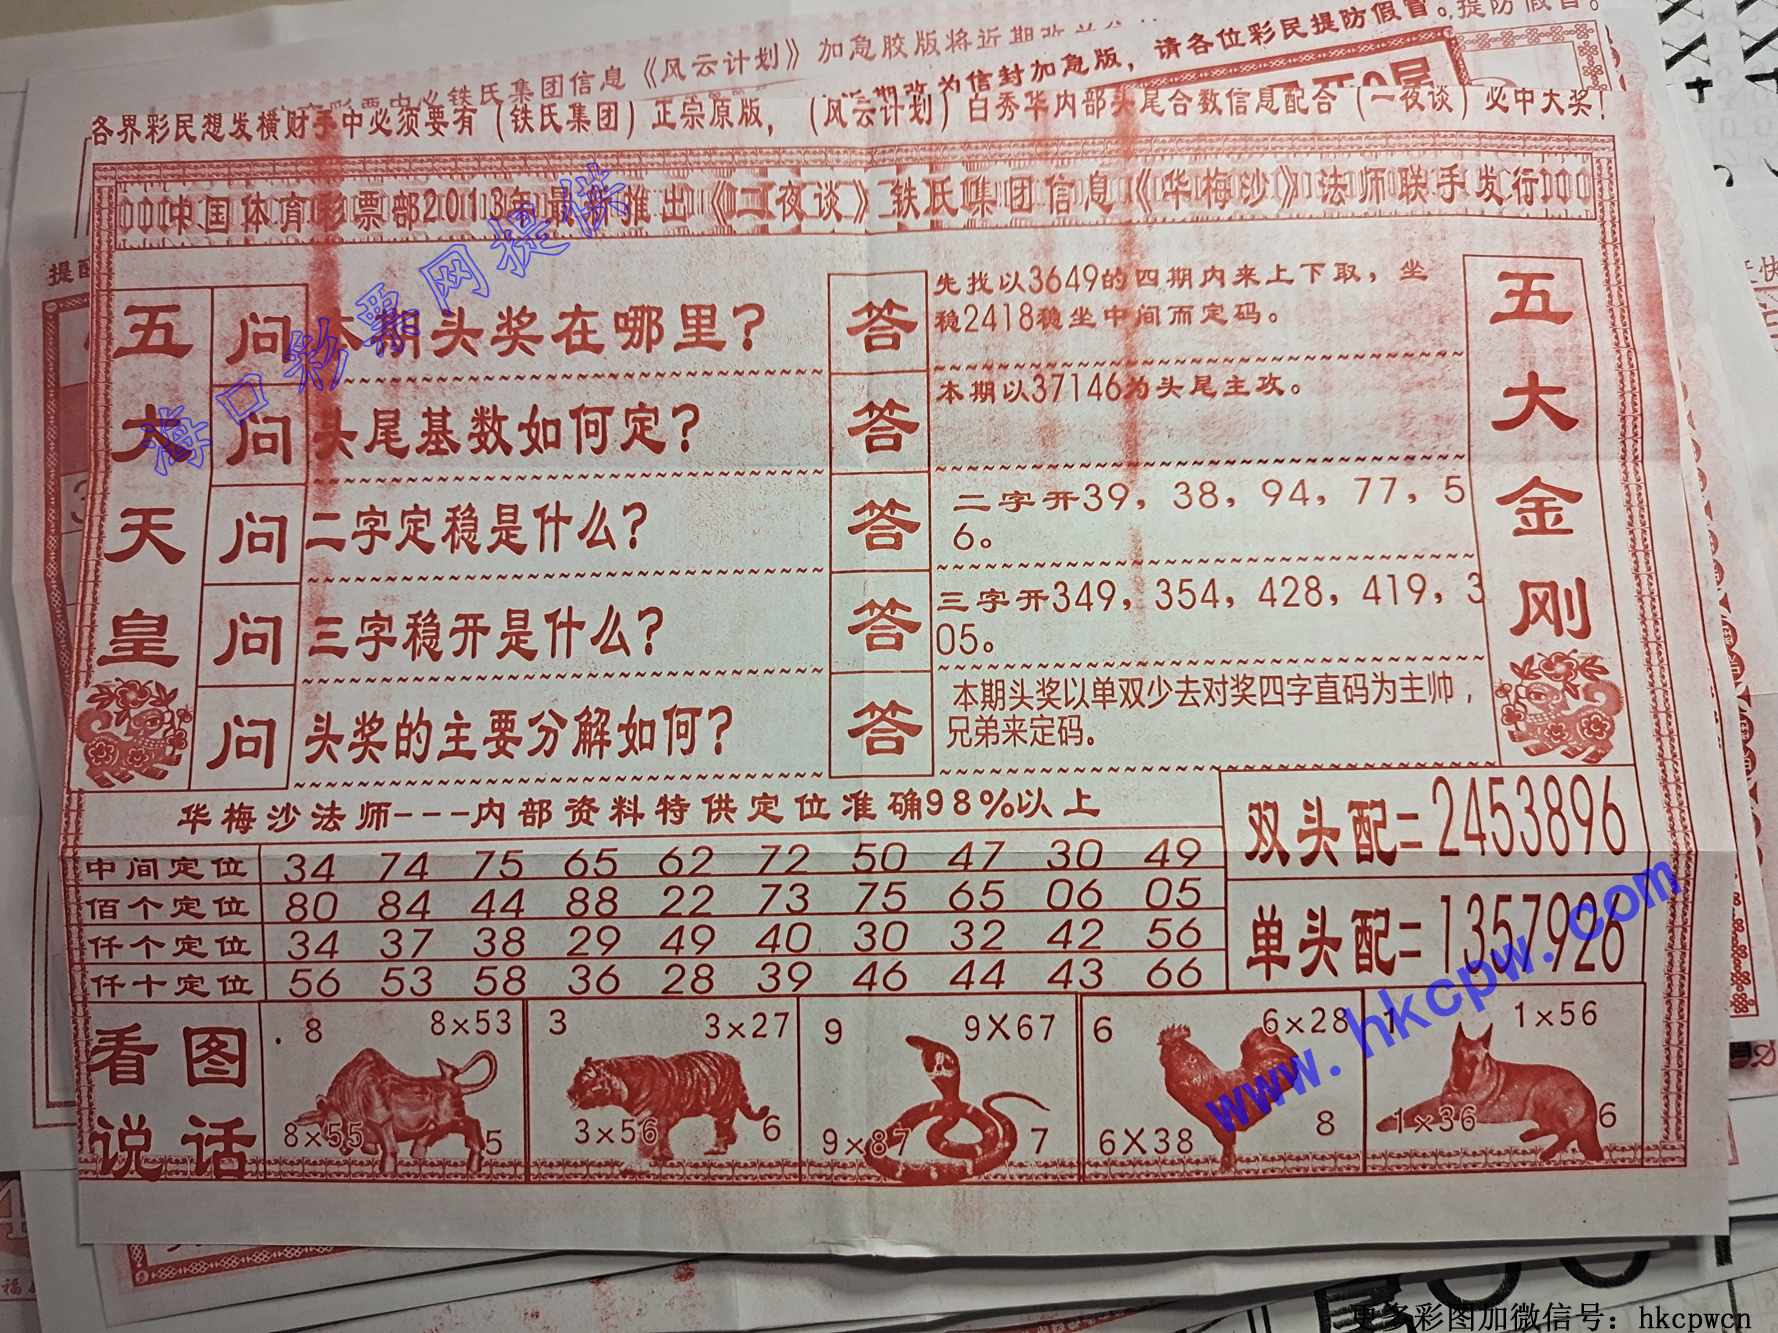 加急胶版将近期改
铁氏集团信息《风云计划》
近期改为信封加急版，请各位彩民提防假冒。提防假冒。
各界彩民想发横财手中必须要有（铁氏集团）正宗原版，（风云计划）白秀华内部头尾合数信息配合（一夜谈）必中大奖！
中国体育彩票部2013年最新推出《一夜谈》铁氏集团信息《华梅沙》法师联手发行
五大天皇
问 本期头奖在哪里？
答 先找以3649的四期内来上下取，坐
稳2418稳坐中间而定码。
问 头尾基数如何定？
答 本期以37146为头尾主攻。
问 二字定稳是什么？
答 二字开39，38，94，77，5
6。
问 三字稳开是什么？
答 三字开349，354，428，419，3
05。
问 头奖的主要分解如何？
答 本期头奖以单双少去对奖四字直码为主帅，
兄弟来定码。
五大金刚
华梅沙法师---内部资料特供定位准确98%以上
中间定位 34 74 75 65 62 72 50 47 30 49
佰个定位 80 84 44 88 22 73 75 65 06 05
仟个定位 34 37 38 29 49 40 30 32 42 56
仟十定位 56 53 58 36 28 39 46 44 43 66
双头配=2453896
单头配=1357926
看图
说话
8 8×53
8×55 5
3 3×27
3×56 6
9 9X67
9×87 7
6 6×28
6X38 8
1 1×56
1×36 6
海口彩票网提供
www.hkcpw.com
更多彩图加微信号：hkcpwcn